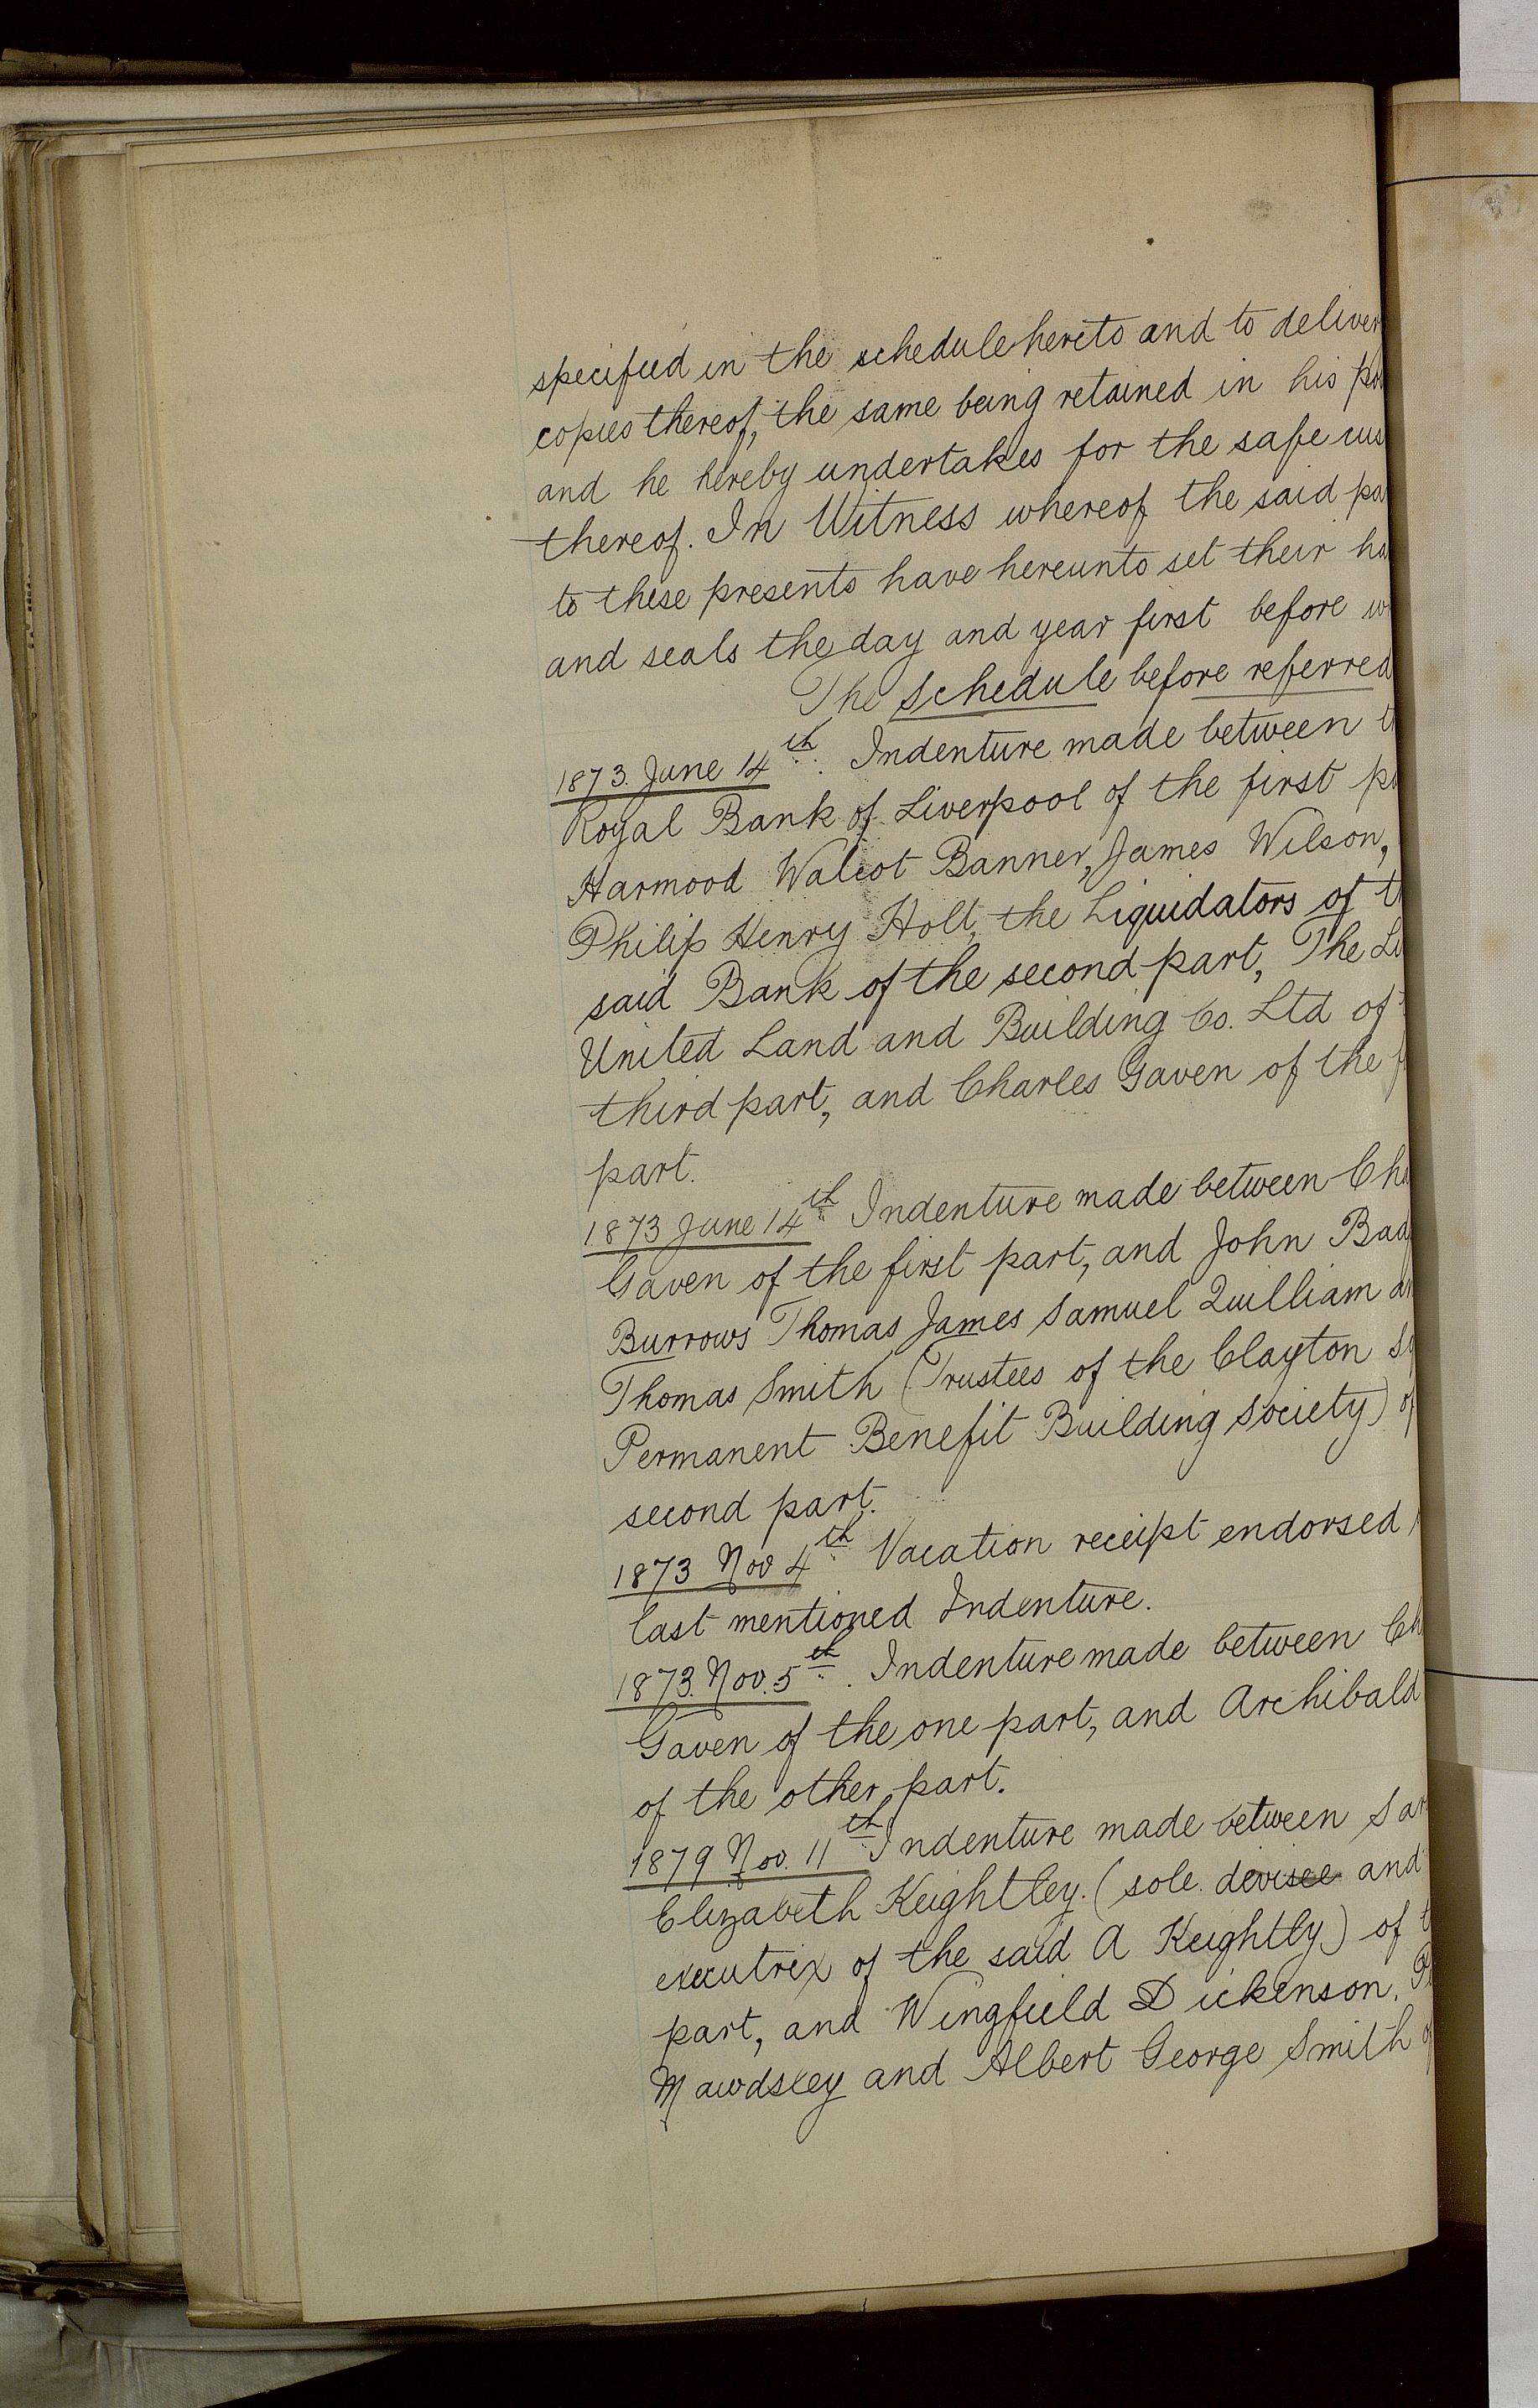 specified in the schedule hereto and to deliver
copies thereof, the same being retained in his
and he hereby undertakes for the safe
thereof. In Witness whereof the said
to these presents have hereunto set their
and seals the day and year first before
The Schedule before referred
1873. June 14th. Indenture made between
Royal Bank of Liverpool of the first
Harmood Walcot Banner, James Wilson,
Philip Henry Holt, the Liquidators of
said Bank of the second part, The
United Land and Building Co. Ltd of
third part, and Charles Gaven of the
part.
1873 June 14th Indenture made between
Gaven of the first part, and John
Burrows Thomas James Samuel Quilliam
Thomas Smith (Trustees of the Clayton
Permanent Benefit Building Society) of
second part.
1873 Nov 4th Vacation receipt endorsed
last mentioned Indenture.
1873. Nov. 5th. Indenture made between
Gaven of the one part, and Archibald
of the other part.
1879 Nov. 11th Indenture made between
Elizabeth Keightley. (sole devisee and
executrix of the said A Keightly) of
part, and Wingfield Dickenson,
Mawdsley and Albert George Smith